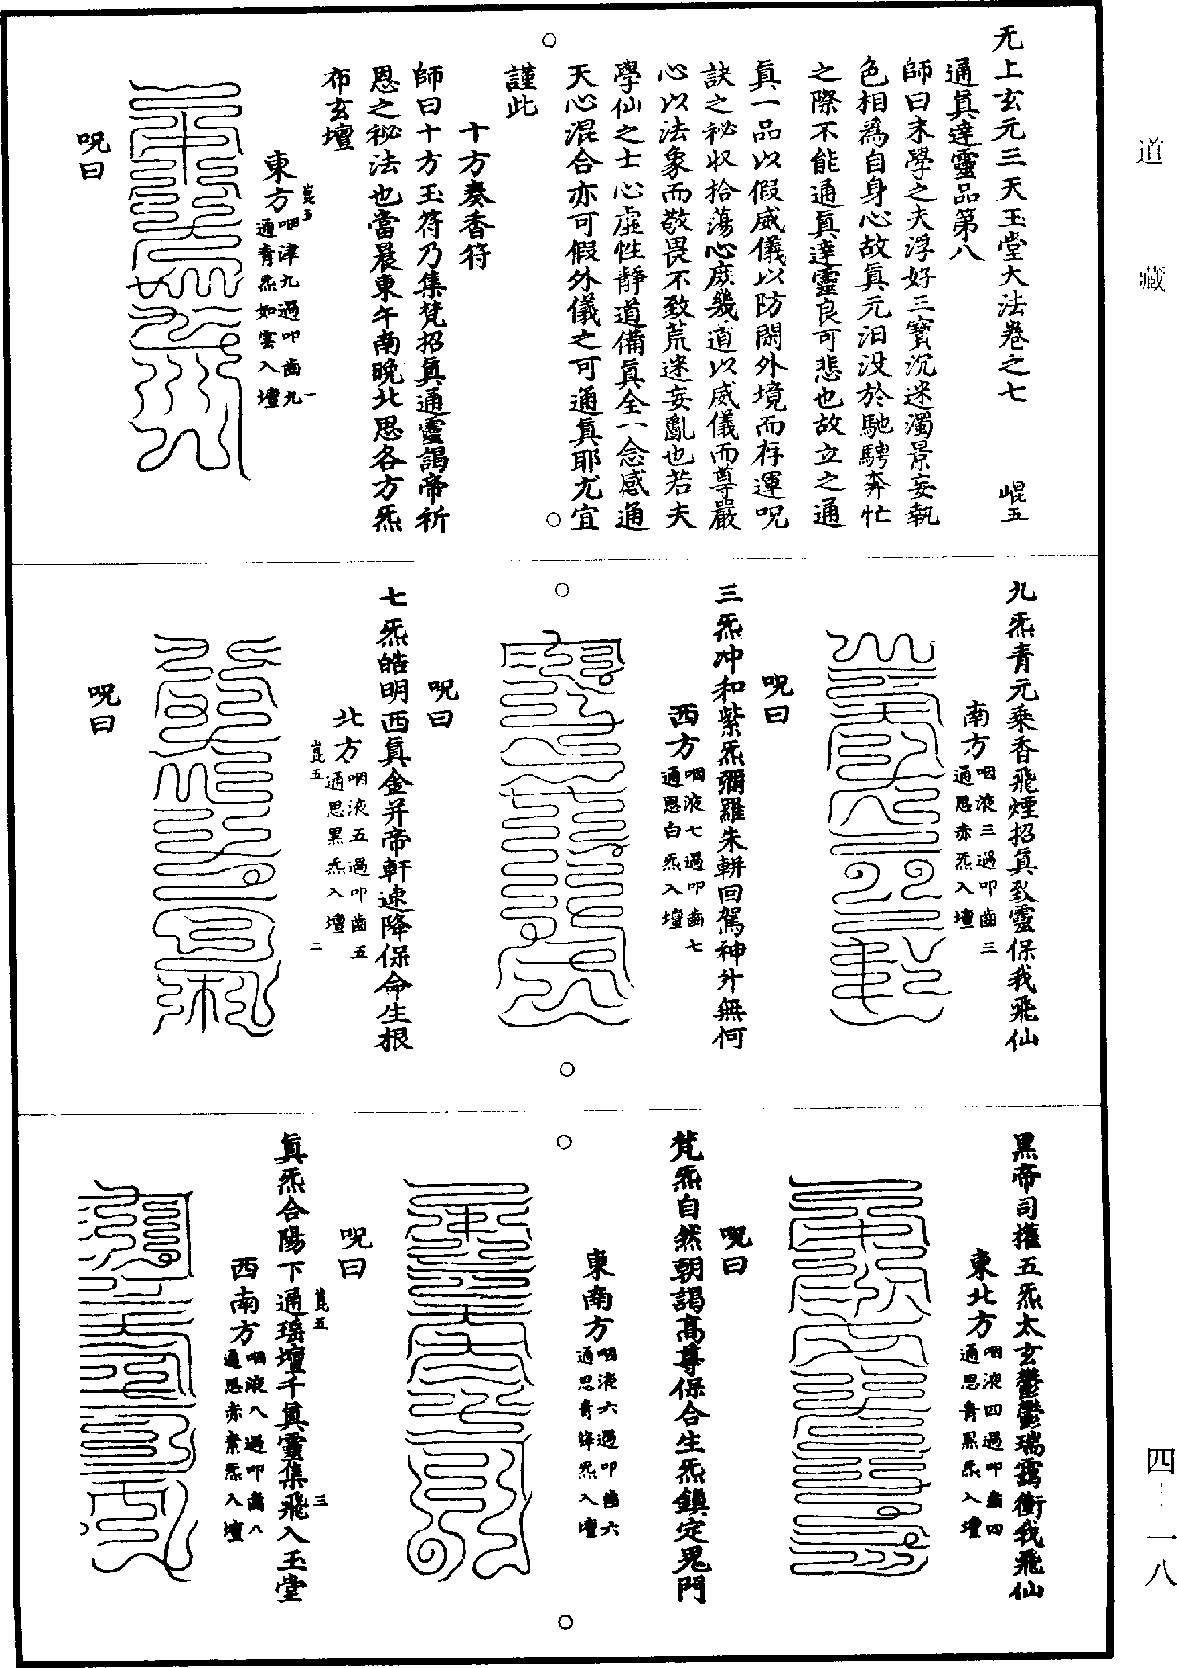 道藏
四一一八
无上玄元三天玉堂大法卷之七 崐五
通眞達靈品第八
師曰末學之夫浮好三寶沉迷濁景妄執
色相爲自身心故眞元汨没於馳騁奔忙
之際不能通眞達靈良可悲也故立之通
眞一品以假威儀以防閑外境而存運呪
訣之秘収拾蕩心庶幾道以威儀而尊嚴
心以法象而敬畏不致荒迷妄亂也若夫
學仙之士心虛性靜道備眞全一念感通
天心混合亦可假外儀之可通眞耶尤宜
謹此
十方奏香符
師曰十方玉符乃集梵招眞通靈謁帝祈
恩之秘法也當晨東午南晚北思各方炁
布玄壇
崐五 一
東方咽津九過叩齒九
通青炁如雲入壇
呪曰
九炁青元乘香飛煙招眞致靈保我飛仙
南方咽液三過叩齒三
通思赤炁入壇
呪曰
三炁冲和紫炁彌羅朱輧回駕神升無何
西方咽液七過叩齒七
通思白炁入壇
呪曰
七炁皓明西眞金并帝軒速降保命生根
北方咽液五過叩齒五
通思黑炁入壇
崐五 二
呪曰
黑帝司權五炁太玄鬱鬱瑞靄衝我飛仙
東北方咽液四過叩齒四
通思青黑炁入壇
呪曰
梵炁自然朝謁高尊保合生炁鎮定鬼門
東南方咽液六過叩齒六
通思青絳炁入壇
呪曰
崐五 三
眞炁合陽下通瑶壇千眞靈集飛入玉堂
西南方咽液八過叩齒八
通思赤素炁入壇